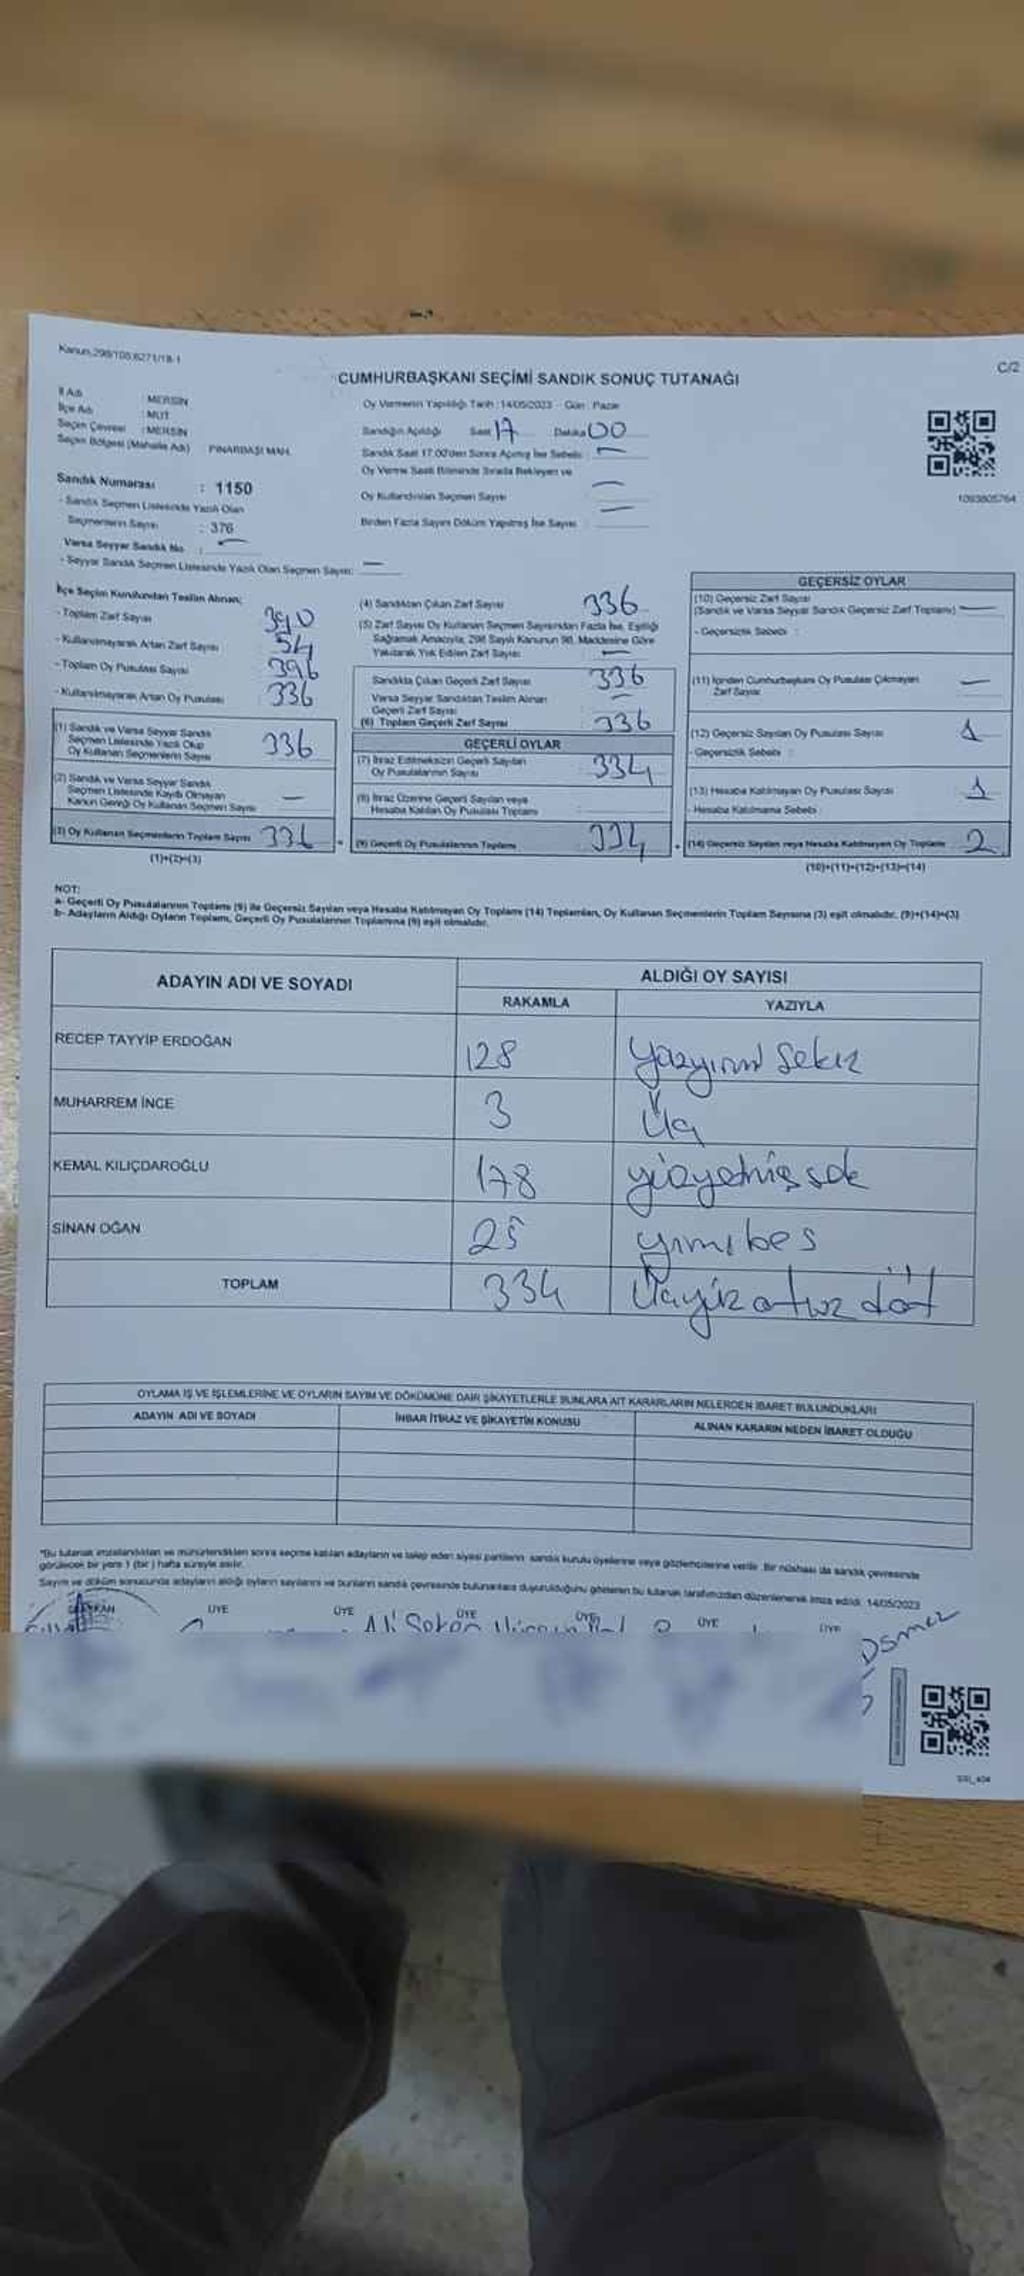 Kanun,298/105,6271/18-1
C/2
CUMHURBAŞKANI SEÇİMİ SANDIK SONUÇ TUTANAĞI
İl Adı : MERSİN
İlçe Adı : MUT
Seçim Çevresi : MERSİN
Seçim Bölgesi (Mahalle Adı) PINARBAŞI MAH.
Sandık Numarası : 1150
- Sandık Seçmen Listesinde Yazılı Olan
Seçmenlerin Sayısı : 376
Varsa Seyyar Sandık No : —
- Seyyar Sandık Seçmen Listesinde Yazılı Olan Seçmen Sayısı: —
Oy Vermenin Yapıldığı Tarih : 14/05/2023 - Gün : Pazar
Sandığın Açıldığı Saat 17 Dakika 00
Sandık Saat 17.00'den Sonra Açılmış İse Sebebi : —
Oy Verme Saati Bitiminde Sırada Bekleyen ve
Oy Kullandırılan Seçmen Sayısı —
Birden Fazla Sayım Döküm Yapılmış İse Sayısı —
1093805764
İlçe Seçim Kurulundan Teslim Alınan;
- Toplam Zarf Sayısı 390
- Kullanılmayarak Artan Zarf Sayısı 54
- Toplam Oy Pusulası Sayısı 396
- Kullanılmayarak Artan Oy Pusulası 336
(1) Sandık ve Varsa Seyyar Sandık
Seçmen Listesinde Yazılı Olup
Oy Kullanan Seçmenlerin Sayısı 336
(2) Sandık ve Varsa Seyyar Sandık
Seçmen Listesinde Kayıtlı Olmayan
Kanun Gereği Oy Kullanan Seçmen Sayısı —
(3) Oy Kullanan Seçmenlerin Toplam Sayısı 336
(1)+(2)=(3)
(4) Sandıktan Çıkan Zarf Sayısı 336
(5) Zarf Sayısı Oy Kullanan Seçmen Sayısından Fazla İse, Eşitliği
Sağlamak Amacıyla, 298 Sayılı Kanunun 98. Maddesine Göre
Yakılarak Yok Edilen Zarf Sayısı —
Sandıkta Çıkan Geçerli Zarf Sayısı 336
Varsa Seyyar Sandıktan Teslim Alınan
Geçerli Zarf Sayısı —
(6) Toplam Geçerli Zarf Sayısı 336
GEÇERLİ OYLAR
(7) İtiraz Edilmeksizin Geçerli Sayılan
Oy Pusulalarının Sayısı 334
(8) İtiraz Üzerine Geçerli Sayılan veya
Hesaba Katılan Oy Pusulası Toplamı
(9) Geçerli Oy Pusulalarının Toplamı 334
GEÇERSİZ OYLAR
(10) Geçersiz Zarf Sayısı
(Sandık ve Varsa Seyyar Sandık Geçersiz Zarf Toplamı) —
- Geçersizlik Sebebi :
(11) İçinden Cumhurbaşkanı Oy Pusulası Çıkmayan
Zarf Sayısı —
(12) Geçersiz Sayılan Oy Pusulası Sayısı 1
- Geçersizlik Sebebi :
(13) Hesaba Katılmayan Oy Pusulası Sayısı 1
- Hesaba Katılmama Sebebi :
(14) Geçersiz Sayılan veya Hesaba Katılmayan Oy Toplamı 2
(10)+(11)+(12)+(13)=(14)
NOT:
a- Geçerli Oy Pusulalarının Toplamı (9) ile Geçersiz Sayılan veya Hesaba Katılmayan Oy Toplamı (14) Toplamları, Oy Kullanan Seçmenlerin Toplam Sayısına (3) eşit olmalıdır. (9)+(14)=(3)
b- Adayların Aldığı Oyların Toplamı, Geçerli Oy Pusulalarının Toplamına (9) eşit olmalıdır.
ADAYIN ADI VE SOYADI
ALDIĞI OY SAYISI
RAKAMLA YAZIYLA
RECEP TAYYİP ERDOĞAN 128 yüzyirmi sekiz
MUHARREM İNCE 3 Üç
KEMAL KILIÇDAROĞLU 178
SİNAN OĞAN 25
TOPLAM 334 Üçyüz otuz dört
OYLAMA İŞ VE İŞLEMLERİNE VE OYLARIN SAYIM VE DÖKÜMÜNE DAİR ŞİKAYETLERLE BUNLARA AİT KARARLARIN NELERDEN İBARET BULUNDUKLARI
ADAYIN ADI VE SOYADI İHBAR İTİRAZ VE ŞİKAYETİN KONUSU ALINAN KARARIN NEDEN İBARET OLDUĞU
*Bu tutanak imzalandıktan ve mühürlendikten sonra seçime katılan adayların ve talep eden siyasi partilerin sandık kurulu üyelerine veya gözlemcilerine verilir. Bir nüshası da sandık çevresinde
görülecek bir yere 1 (bir) hafta süreyle asılır.
Sayım ve döküm sonucunda adayların aldığı oyların sayılarını ve bunların sandık çevresinde bulunanlara duyurulduğunu gösteren bu tutanak tarafımızdan düzenlenerek imza edildi. 14/05/2023
BAŞKAN ÜYE ÜYE ÜYE ÜYE ÜYE ÜYE